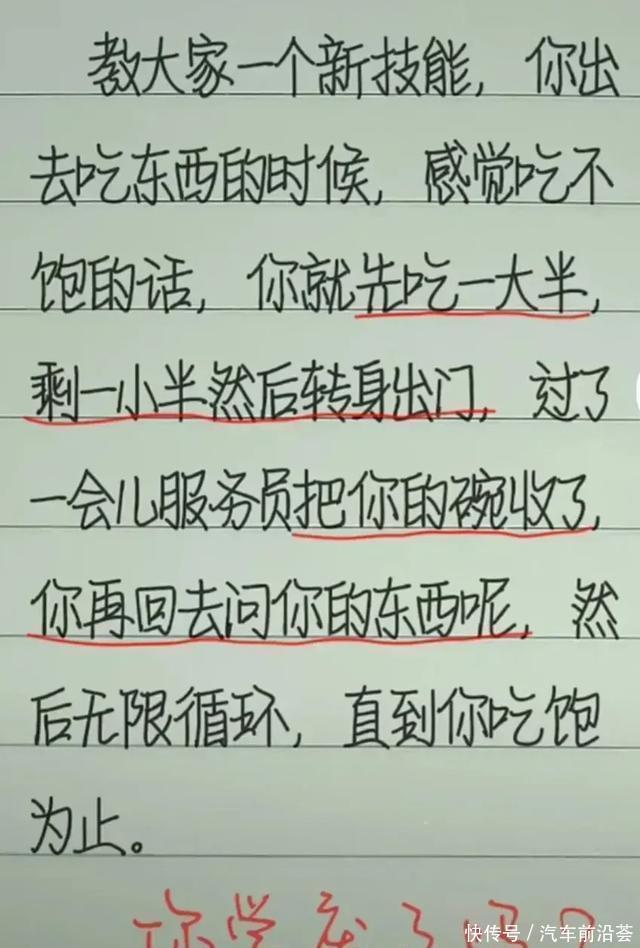 教大家一个新技能，你出
去吃东西的时候，感觉吃不
饱的话，你就先吃一大半，
剩一小半然后转身出门，过了
一会儿服务员把你的碗收了，
你再回去问你的东西呢，然
后无限循环，直到你吃饱
为止。
你学会了吗？
快传号／汽车前沿荟